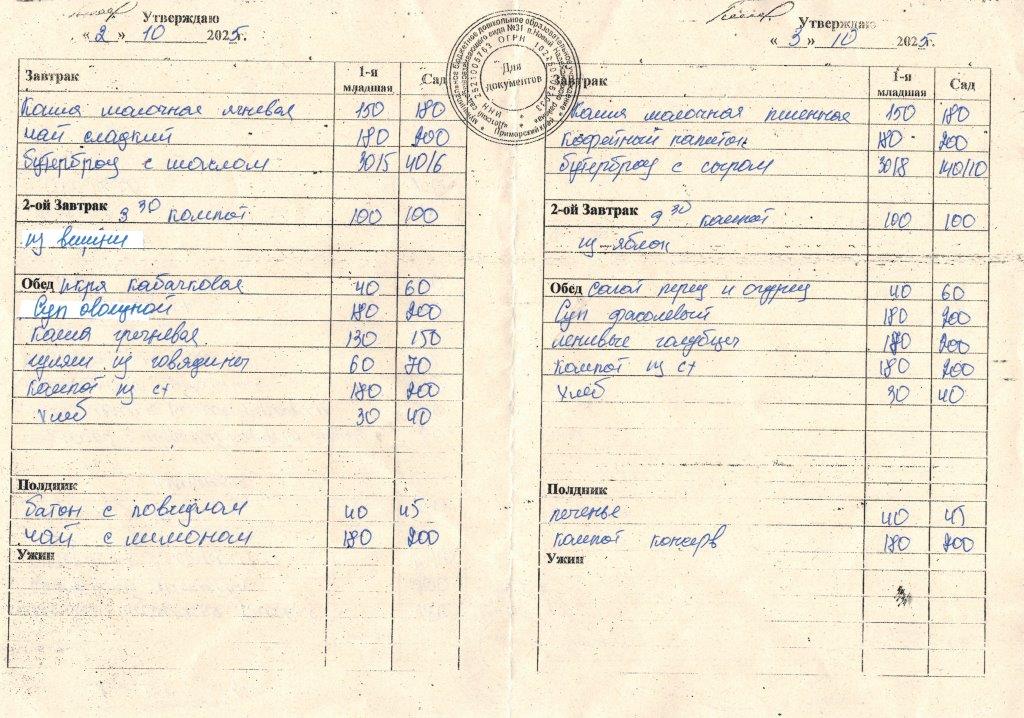 Утверждаю
« 2 » 10 2025г.
Завтрак 1-я младшая Сад
Каша молочная ячневая 150 180
чай сладкий 180 200
бутерброд с маслом 30/5 40/6
2-ой Завтрак 9 30 компот 100 100
из вишни
Обед икра кабачковая 40 60
Суп овощной 180 200
каша гречневая 130 150
гуляш из говядины 60 70
компот из с\х 180 200
хлеб 30 40
Полдник
батон с повидлом 40 45
чай с лимоном 180 200
Ужин
Для документов
Утверждаю
« 3 » 10 2025г.
Завтрак 1-я младшая Сад
Каша молочная пшенная 150 180
Кофейный напиток 180 200
бутерброд с сыром 30/8 40/10
2-ой Завтрак 9 30 компот 100 100
из яблок
Обед салат перец и огурец 40 60
Суп фасолевый 180 200
ленивые голубцы 180 200
компот из с\х 180 200
хлеб 30 40
Полдник
печенье 40 45
компот консерв 180 200
Ужин